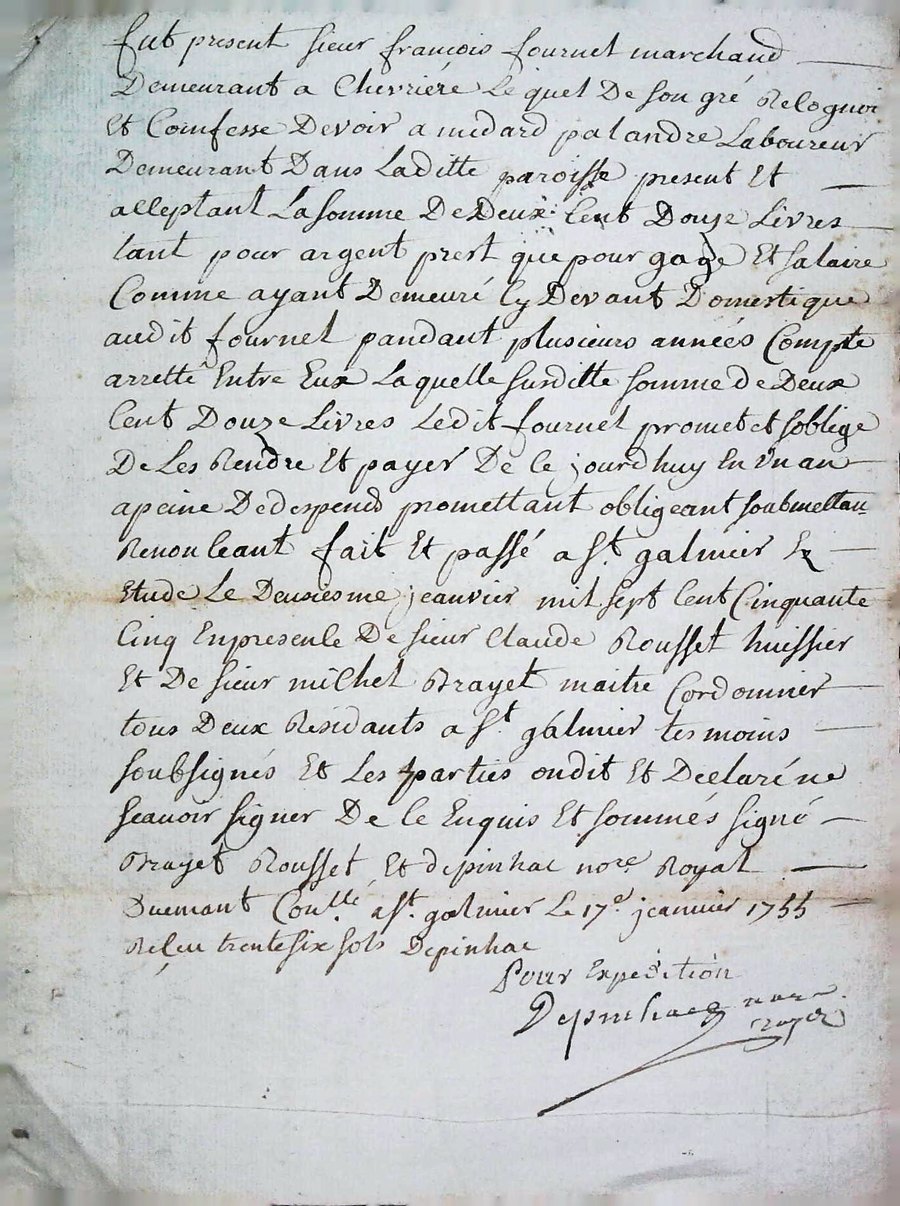 fut present sieur françois fournel marchand
Demeurant a Chevriére Le quel De son gré Recognoi
Et Comfesse Devoir a medard palandre Laboureur
Demeurant Dans Laditte paroisse present Et
acceptant La somme De Deux Cent Douze Livres
tant pour argent prest que pour gage Et salaire
Comme ayant Demeuré Cy Devant Domestique
audit fournel pandant plusieurs années Compte
arretté Entre Eux Laquelle susditte somme de Deux
Cent Douze Livres Ledit fournel promet et soblige
De Les Rendre Et payer De Ce jourdhuy En Un an
apeine De despend promettant obligeant soubmettan
Renonceant fait Et passé a St. galmier En
Etude Le Deusiesme jeanvier mil sept Cent Cinquante
Cinq En presence De sieur Claude Rousset huissier
Et De sieur michel Brayet maitre Cordonnier
tous Deux Residants a St. galmier tesmoins
soubsignés Et Les parties ondit Et Déclaré ne
sçavoir signer De Ce Enquis Et sommés signé
Brayet Rousset Et depinhac nore Royal
Duemant Coullé a St. galmier Le 17e jeanvier 1755
Reçeu trente six sols Depinhac
Pour Expedition
Depinhac nore